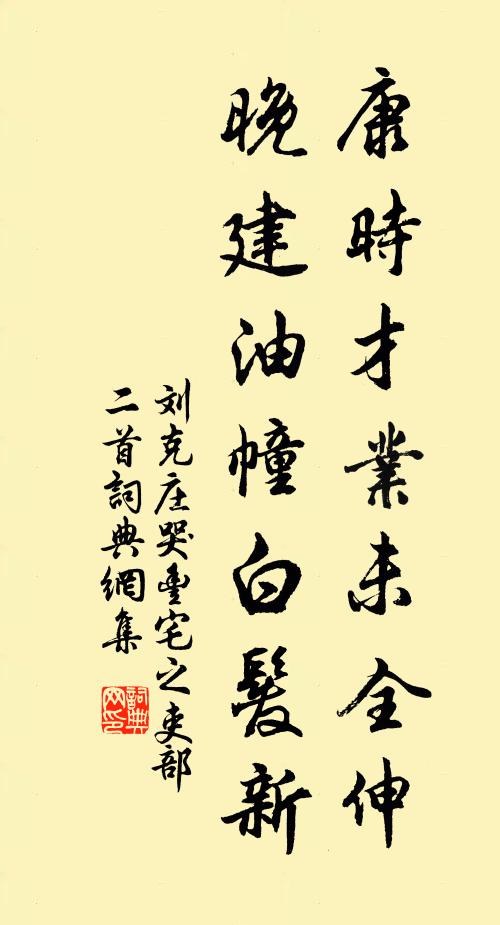 康時才業未全伸
晚建油幢白髮新
刘克庄哭豊宅之吏部
二首詞典網集
詞典
网印